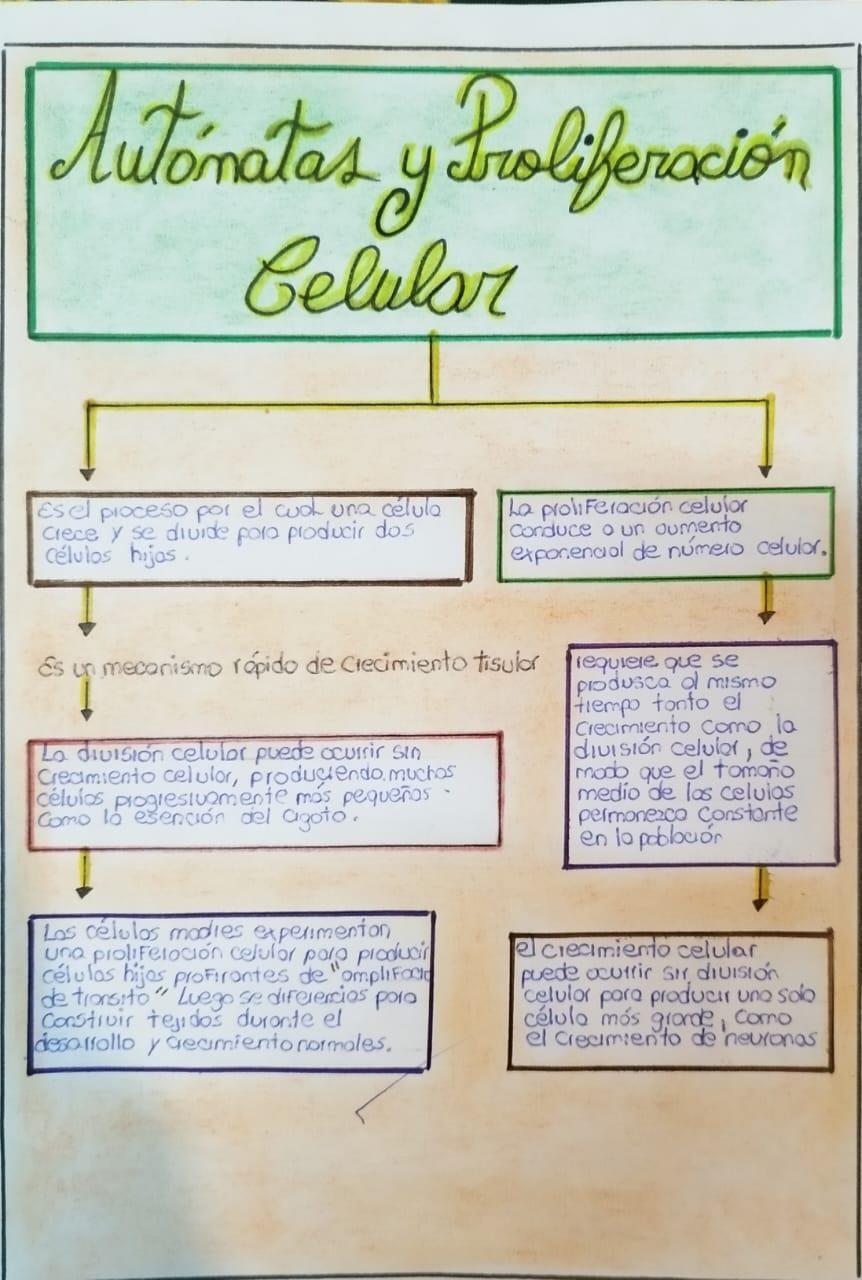 Autómatas y Proliferación
Celular
Es el proceso por el cual una célula
crece y se divide para producir dos
células hijas.
Es un mecanismo rápido de crecimiento tisular
La división celular puede ocurrir sin
Crecimiento celular, produciendo muchas
células progresivamente más pequeñas.
Como la esención del cigoto.
Las células madres experimentan
una proliferación celular para producir
células hijas profirantes de "amplificacio
de transito" Luego se diferencias para
Construir tejidos durante el
desarrollo y crecimiento normales.
La proliferación celular
conduce a un aumento
exponencial de número celular.
requiere que se
produsca al mismo
tiempo tanto el
Crecimiento como la
división celular, de
modo que el tamaño
medio de las celulas
permanezca constante
en la población
el crecimiento celular
puede ocurrir sin división
celular para producir una sola
célula más grande, como
el crecimiento de neuronas